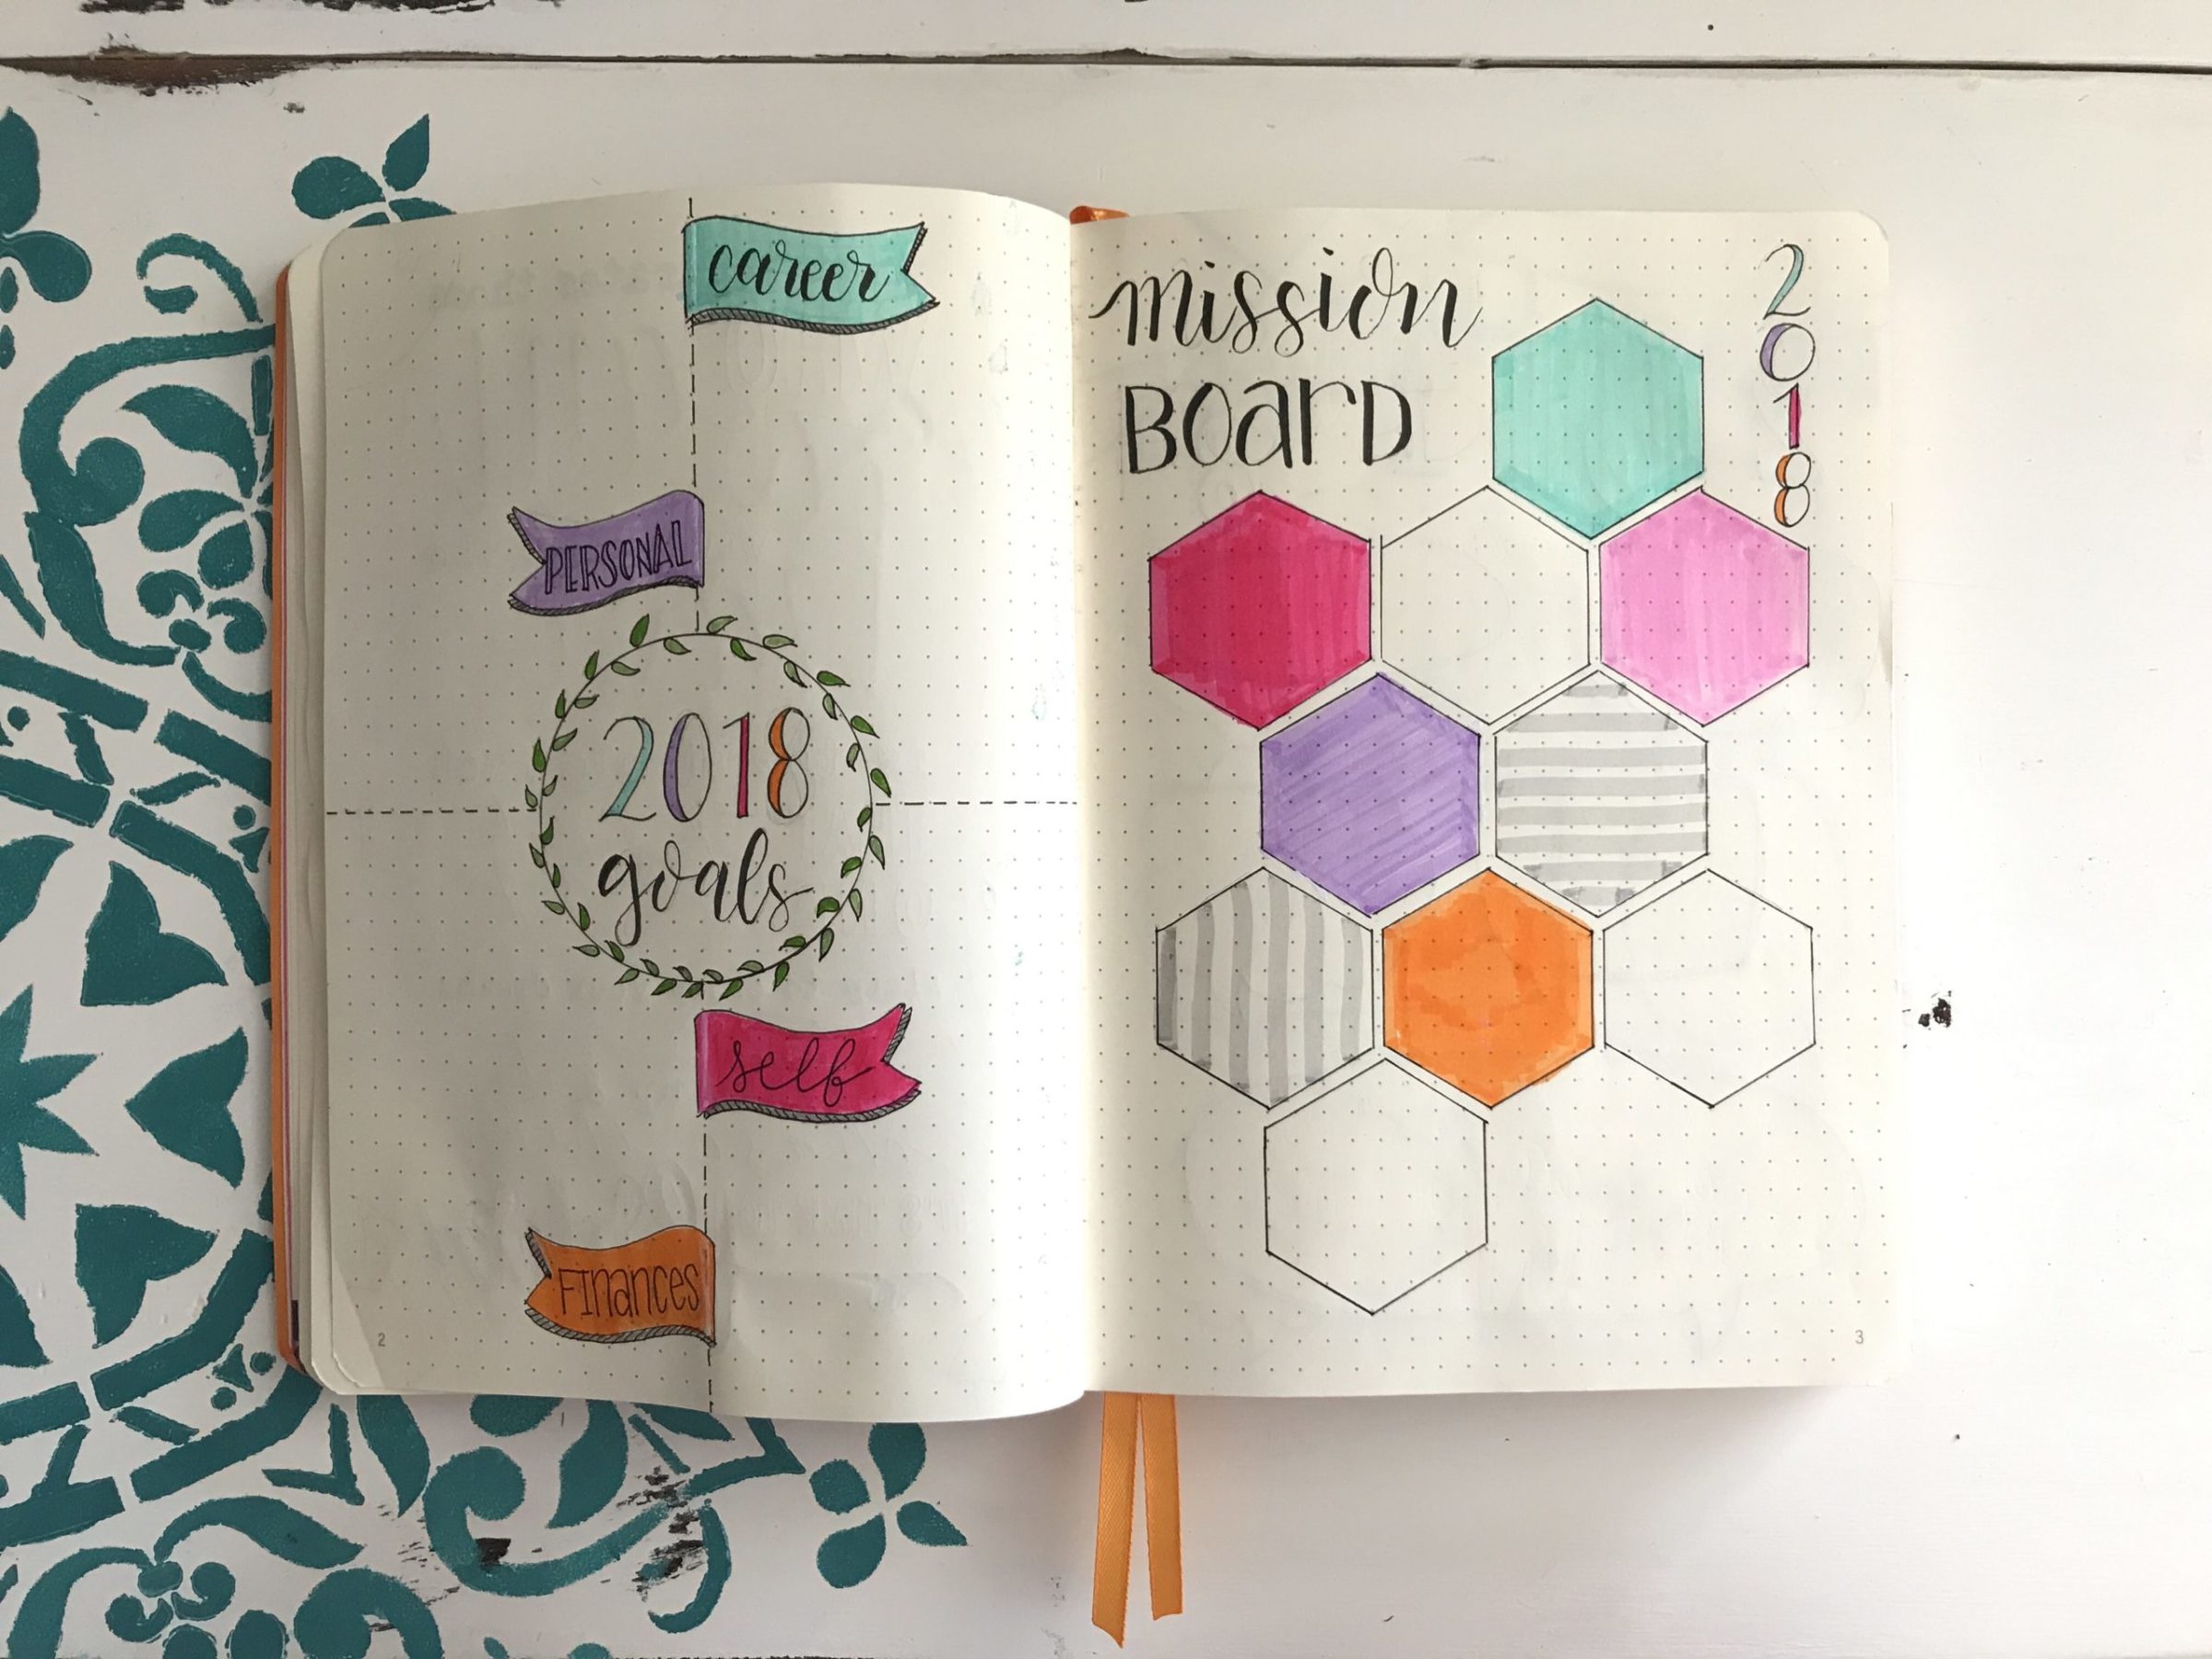 career
PERSONAL
2018
goals
self
Finances
2
mission
Board
2018
3